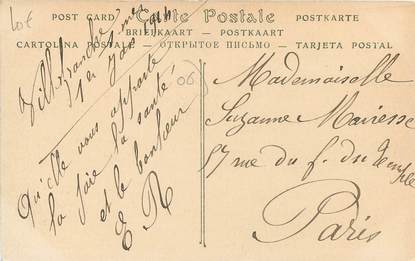 10€
POST CARD — Carte Postale — POSTKARTE
BRIEFKAART — POSTKAART
CARTOLINA POSTALE — ОТКРЫТОЕ ПИСЬМО — TARJETA POSTAL
Villefranche
1er Janv
Qu'elle vous apporte
la joie la santé
et le bonheur
E R
06
Mademoiselle
Suzanne Mairesse
57 rue du f. du Temple
Paris